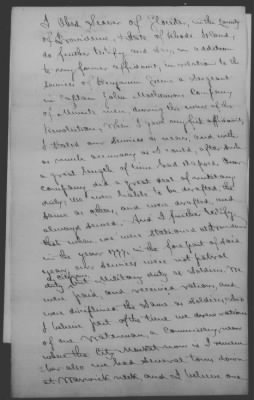 I Obed Seaver of Glocester, in the County
of Providence, & State of Rhode Island,
do further testify and say, in addition
to my former affidavit, in relation to the
service of Benjamin Green a Sergeant
in Captain John Mathewson Company
of Minute men during the war of the
Revolution. When I gave my first affidavit,
I stated our service as near, and with
as much accuracy as I could, after such
a great length of time had elapsed. Our
Company did a great deal of military
duty; we were liable to be drafted, the
same as others, and were drafted, and
always served. And I further testify
that when we were stationed at Providence
in the year 1777, in the fore part of said
year, our services were not patrol
duty but Military duty as soldiers. We
were paid, and received rations, and
were disciplined the same as soldiers,
I believe part of the time we drew rations
of one Waterman, a Commissary, near
where the City Market now is I remem-
ber also we had several tours down
at Warwick neck, and I believe one